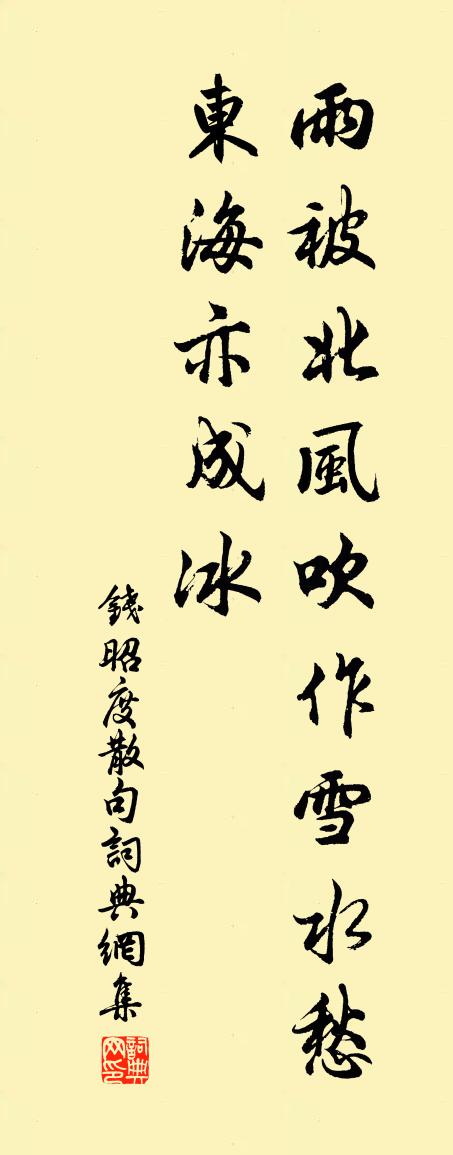 雨被北風吹作雪水愁
東海亦成冰
錢昭度散句詞典網集
詞典網印